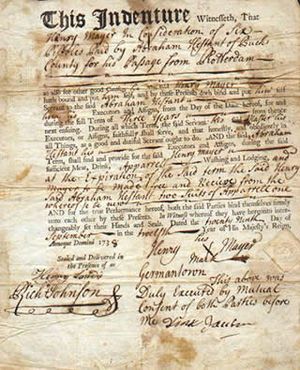 This Indenture Witnesseth, That
Henry Mayer In Consideration of Six
Pistoles Paid by Abraham Hestant of Bucks
County for his Passage from Rotterdam
as also for other good Causes, Henry Mayer
hath bound and put himself, and by these Presents doth bind and put himself
said Abraham Hestant
Executors and Assigns, from the Day of the Date hereof, for and
full Term of three Years from thence
next ensuing. During all which Term, the said Servant
Executors and Assigns, faithfully shall serve, and that honestly and obediently in
all Things, as a good and dutiful Servant ought to do. AND the said Abraham
Hestant his Executors and Assigns, during the
Term, shall find and provide for the said Henry Mayer
sufficient Meat, Drink, Apparel Washing and Lodging, and
at the Expiration of the said term the said Henry
Mayer to be made free and Receive from the
said Abraham Hestant two Suits of Apparell one
whereof is to be new
AND for the true Performance hereof, both the said Parties bind themselves firmly
unto each other by these Presents. In Witness whereof they have hereunto
changeably set their Hands and Seals. Dated the twenty Ninth Day of
September in the twelfth Year of His Majesty's Reign,
Annoque Domini 1738
his
Sealed and Delivered
in the Presence of us
Henry X Mayer
Mark
Rich Johnson
Germantown
This above was
Duly Executed by Mutual
Consent of both Parties before
Me